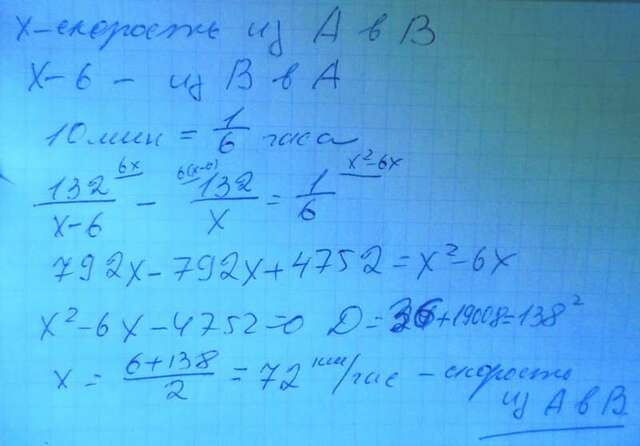 x - скорость из A в B
x - 6 - из B в A
10 мин = 1/6 часа
132/(x-6) ^6x - ^6(x-6) 132/x = 1/6 ^x²-6x
792x - 792x + 4752 = x² - 6x
x² - 6x - 4752 = 0 D = 36 + 19008 = 138²
x = (6+138)/2 = 72 км/час - скорость
из A в B